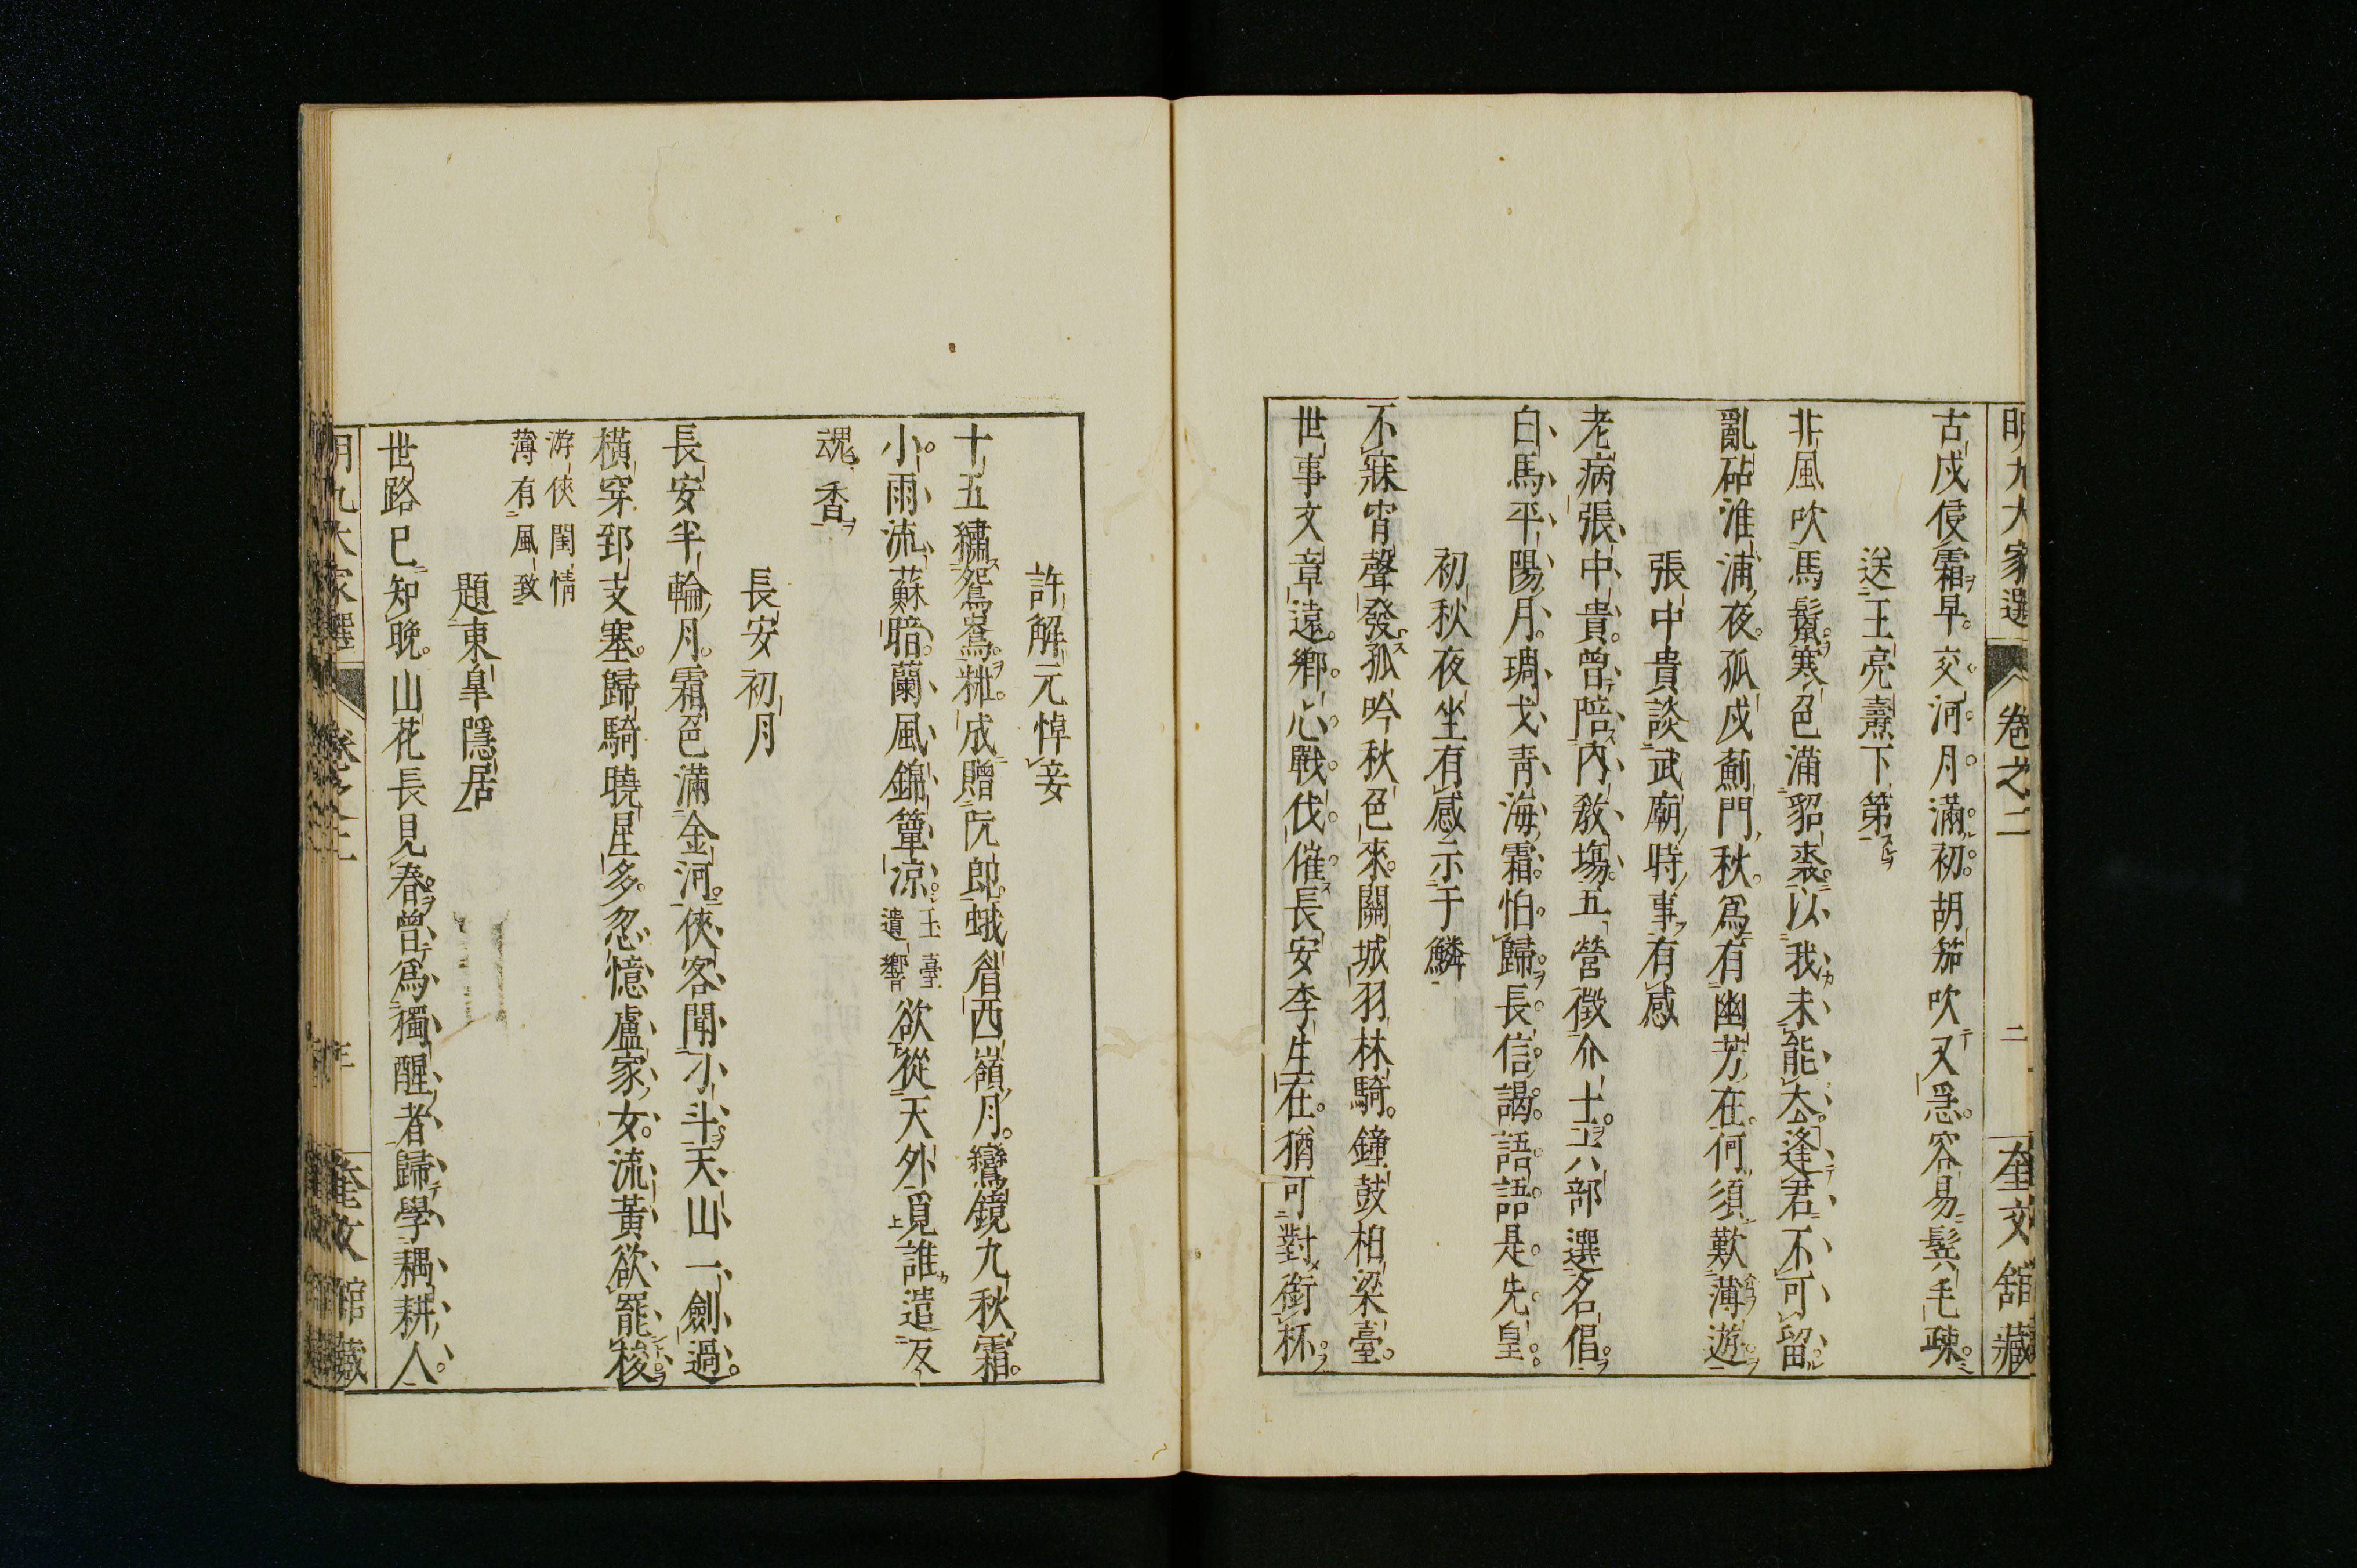 明九大家選 卷之二 二 奎文館藏
古戍侵霜早交河月滿初胡笳吹又急容易鬂毛疎
送王亮熹下第
北風吹馬鬣寒色滿貂裘以我未能去逢君不可留
亂砧淮浦夜孤戍薊門秋爲有幽芳在何須歎薄遊
張中貴談武廟時事有感
老病張中貴曾陪內敎塲五營徵介士六部選名倡
白馬平陽月琱戈靑海霜怕歸長信謁語語是先皇
初秋夜坐有感示于鱗
不寐宵聲發孤吟秋色來關城羽林騎鐘鼓柏梁臺
世事文章遠鄉心戰伐催長安李生在猶可對銜杯
許解元悼妾
十五繡鴛鴦粧成贈阮郎蛾眉西嶺月鸞鏡九秋霜
小雨流蘇暗蘭風錦簟凉玉臺遺響欲從天外覓誰遣返
魂香
長安初月
長安半輪月霜色滿金河俠客聞刁斗天山一劍過
橫穿郅支塞歸騎曉星多忽憶盧家女流黃欲罷梭
游俠閨情
薄有風致
題東皐隱居
世路已知晚山花長見春曾爲獨醒者歸學耦耕人
明九大家選 卷之二 奎文館藏